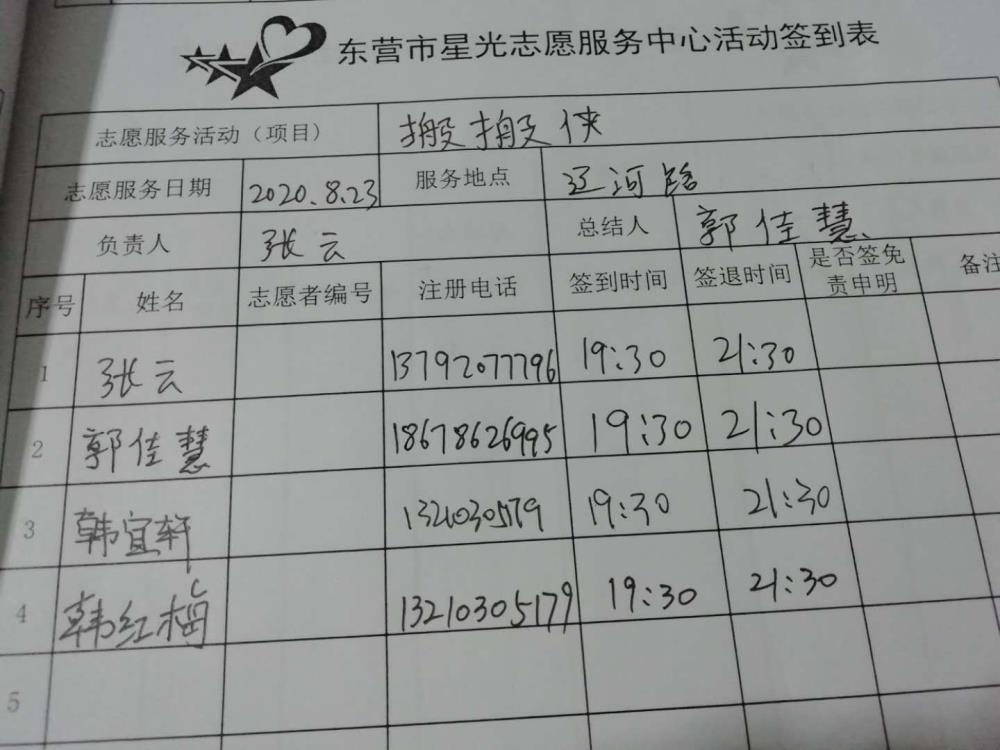 东营市星光志愿服务中心活动签到表
志愿服务活动（项目） 搬搬侠
志愿服务日期 2020.8.23 服务地点 辽河路
负责人 张云 总结人 郭佳慧
序号 姓名 志愿者编号 注册电话 签到时间 签退时间 是否签免责申明 备注
1 张云 13792077796 19:30 21:30
2 郭佳慧 18678626995 19:30 21:30
3 韩宜轩 13210305179 19:30 21:30
4 韩红梅 13210305179 19:30 21:30
5